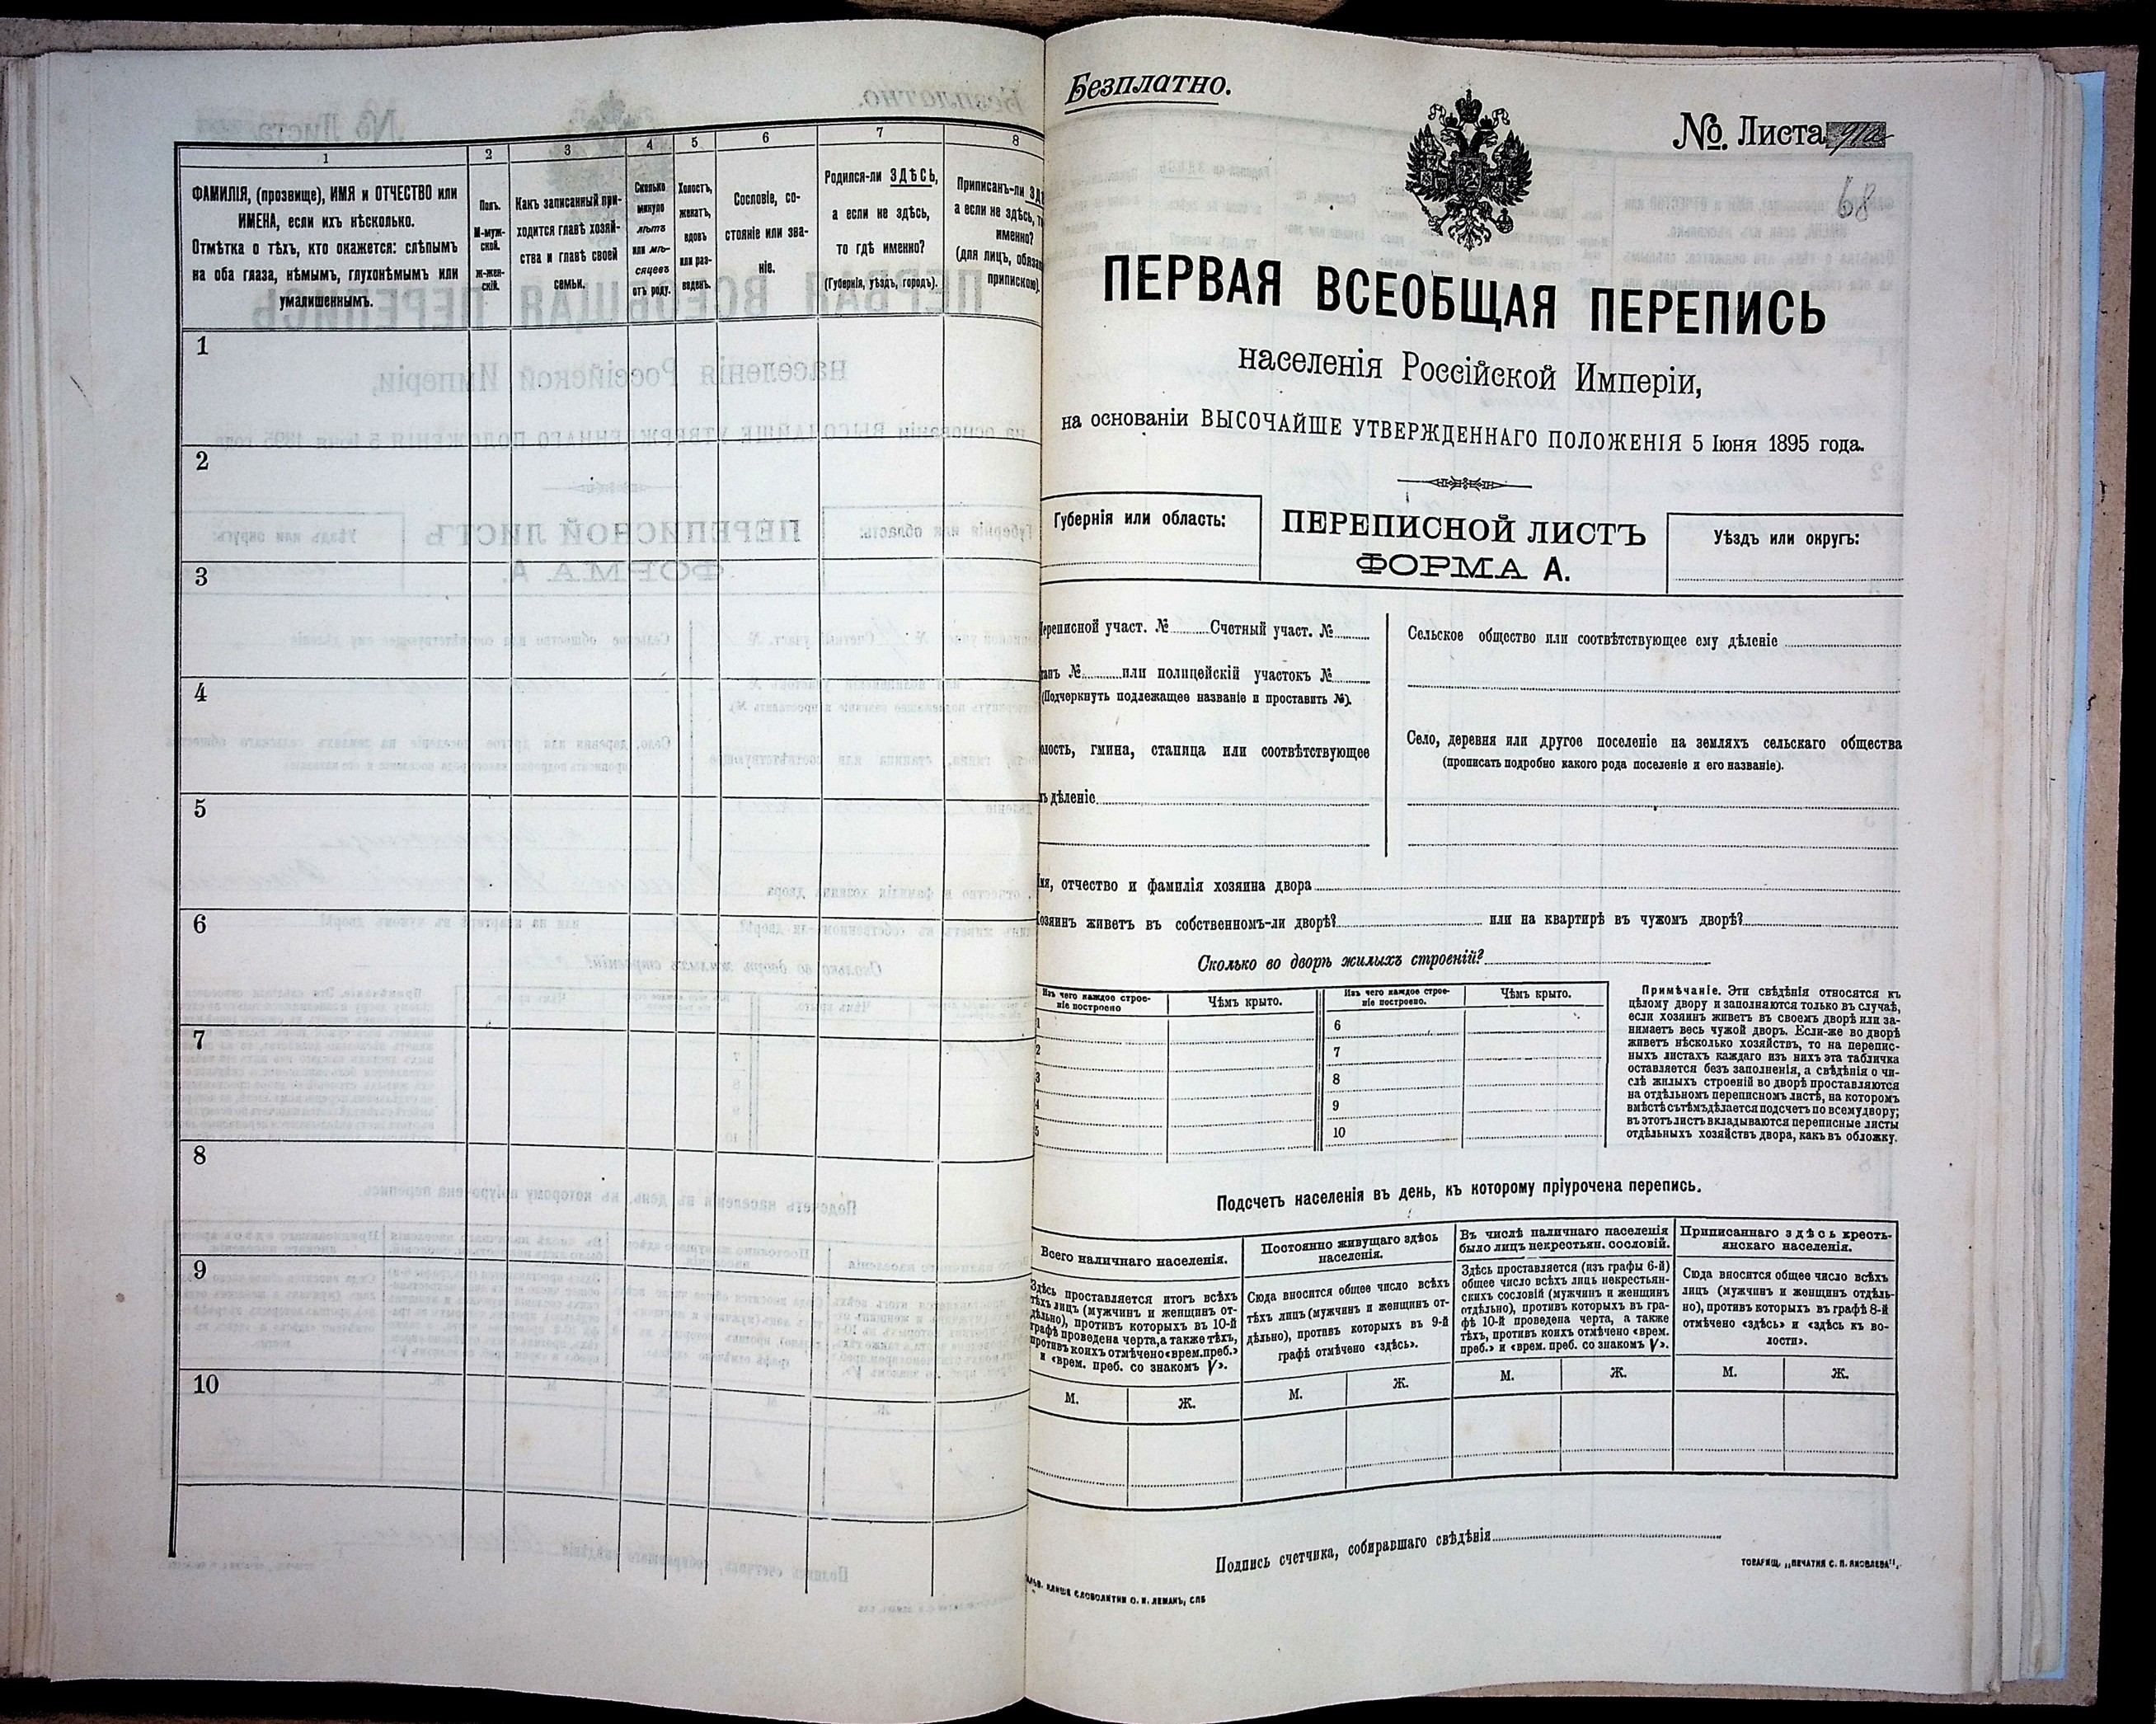 1
2
3
4
5
6
7
8
ФАМИЛІЯ, (прозвище), ИМЯ и ОТЧЕСТВО или
ИМЕНА, если ихъ нѣсколько.
Отмѣтка о тѣхъ, кто окажется: слѣпымъ
на оба глаза, нѣмымъ, глухонѣмымъ или
умалишеннымъ.
Полъ.
М-муж-
ской.
ж-жен-
скій.
Какъ записанный при-
ходится главѣ хозяй-
ства и главѣ своей
семьи.
Сколько
минуло
лѣтъ
или мѣ-
сяцевъ
отъ роду.
Холостъ,
женатъ,
вдовъ
или раз-
веденъ.
Сословіе, со-
стояніе или зва-
ніе.
Родился-ли ЗДѢСЬ,
а если не здѣсь,
то гдѣ именно?
(Губернія, уѣздъ, городъ).
Приписанъ-ли
а если не здѣсь,
именно?
(для лицъ,
припискою).
1
2
3
4
5
6
7
8
9
10
Безплатно.
№. Листа
68
ПЕРВАЯ ВСЕОБЩАЯ ПЕРЕПИСЬ
населенія Россійской Имперіи,
на основаніи ВЫСОЧАЙШЕ УТВЕРЖДЕННАГО ПОЛОЖЕНІЯ 5 Іюня 1895 года.
Губернія или область:
ПЕРЕПИСНОЙ ЛИСТЪ
ФОРМА А.
Уѣздъ или округъ:
участ. № Счетный участ. №
№ или полицейскій участокъ №
(Подчеркнуть подлежащее названіе и проставить №).
гмина, станица или соотвѣтствующее
дѣленіе
Сельское общество или соотвѣтствующее ему дѣленіе
Село, деревня или другое поселеніе на земляхъ сельскаго общества
(прописать подробно какого рода поселеніе и его названіе).
отчество и фамилія хозяина двора
живетъ въ собственномъ-ли дворѣ? или на квартирѣ въ чужомъ дворѣ?
Сколько во дворѣ жилыхъ строеній?
Изъ чего каждое строе-
ніе построено
Чѣмъ крыто.
Изъ чего каждое строе-
ніе построено.
Чѣмъ крыто.
1
2
3
4
5
6
7
8
9
10
Примѣчаніе. Эти свѣдѣнія относятся къ
цѣлому двору и заполняются только въ случаѣ,
если хозяинъ живетъ въ своемъ дворѣ или за-
нимаетъ весь чужой дворъ. Если-же во дворѣ
живетъ нѣсколько хозяйствъ, то на перепис-
ныхъ листахъ каждаго изъ нихъ эта табличка
оставляется безъ заполненія, а свѣдѣнія о чи-
слѣ жилыхъ строеній во дворѣ проставляются
на отдѣльномъ переписномъ листѣ, на которомъ
вмѣстѣ съ тѣмъ дѣлается подсчетъ по всему двору;
въ этотъ листъ вкладываются переписные листы
отдѣльныхъ хозяйствъ двора, какъ въ обложку.
Подсчетъ населенія въ день, къ которому пріурочена перепись.
Всего наличнаго населенія.
Здѣсь проставляется итогъ всѣхъ
тѣхъ лицъ (мужчинъ и женщинъ от-
дѣльно), противъ которыхъ въ 10-й
графѣ проведена черта, а также тѣхъ,
противъ коихъ отмѣчено «врем. преб.»
и «врем. преб. со знакомъ V».
М.
Ж.
Постоянно живущаго здѣсь
населенія.
Сюда вносится общее число всѣхъ
тѣхъ лицъ (мужчинъ и женщинъ от-
дѣльно), противъ которыхъ въ 9-й
графѣ отмѣчено «здѣсь».
М.
Ж.
Въ числѣ наличнаго населенія
было лицъ некрестьян. сословій.
Здѣсь проставляется (изъ графы 6-й)
общее число всѣхъ лицъ некрестьян-
скихъ сословій (мужчинъ и женщинъ
отдѣльно), противъ которыхъ въ гра-
фѣ 10-й проведена черта, а также
тѣхъ, противъ коихъ отмѣчено «врем.
преб.» и «врем. преб. со знакомъ V».
М.
Ж.
Приписаннаго здѣсь кресть-
янскаго населенія.
Сюда вносится общее число всѣхъ
лицъ (мужчинъ и женщинъ отдѣль-
но), противъ которыхъ въ графѣ 8-й
отмѣчено «здѣсь» и «здѣсь къ во-
лости».
М.
Ж.
Подпись счетчика, собиравшаго свѣдѣнія
СЛОВОЛИТНИ О. И. ЛЕМАНЪ, СПБ
ТОВАРИЩ. „ПЕЧАТНЯ С. П. ЯКОВЛЕВА".